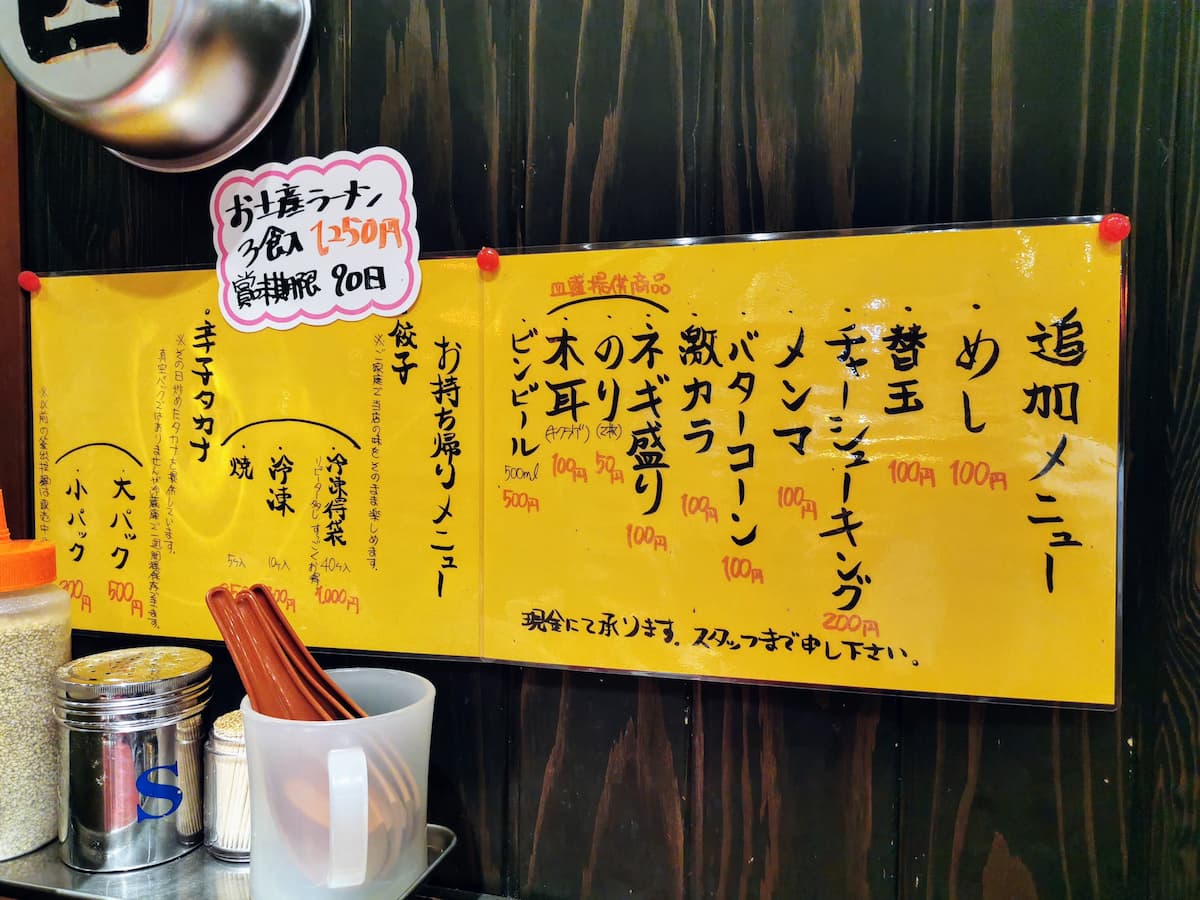 お土産ラーメン
3食入 1,250円
賞味期限 90日
追加メニュー
・めし 100円
・替玉 100円
・チャーシューキング 200円
・メンマ 100円
・バターコーン 100円
・激カラ 100円
提供商品
・ネギ盛り 100円
・のり(2枚) 50円
・木耳(キクラゲ) 100円
・ビンビール 500ml 500円
現金にて承ります。スタッフまで申し下さい。
お持ち帰りメニュー
・餃子
※ご家庭で当店の味をそのまま楽しめます。
・冷凍得袋 40ヶ入 1,000円
・冷凍 10ヶ入
・焼 5ヶ入
・辛子タカナ
※その日炒めたタカナを提供しています。
・大パック 500円
・小パック
S